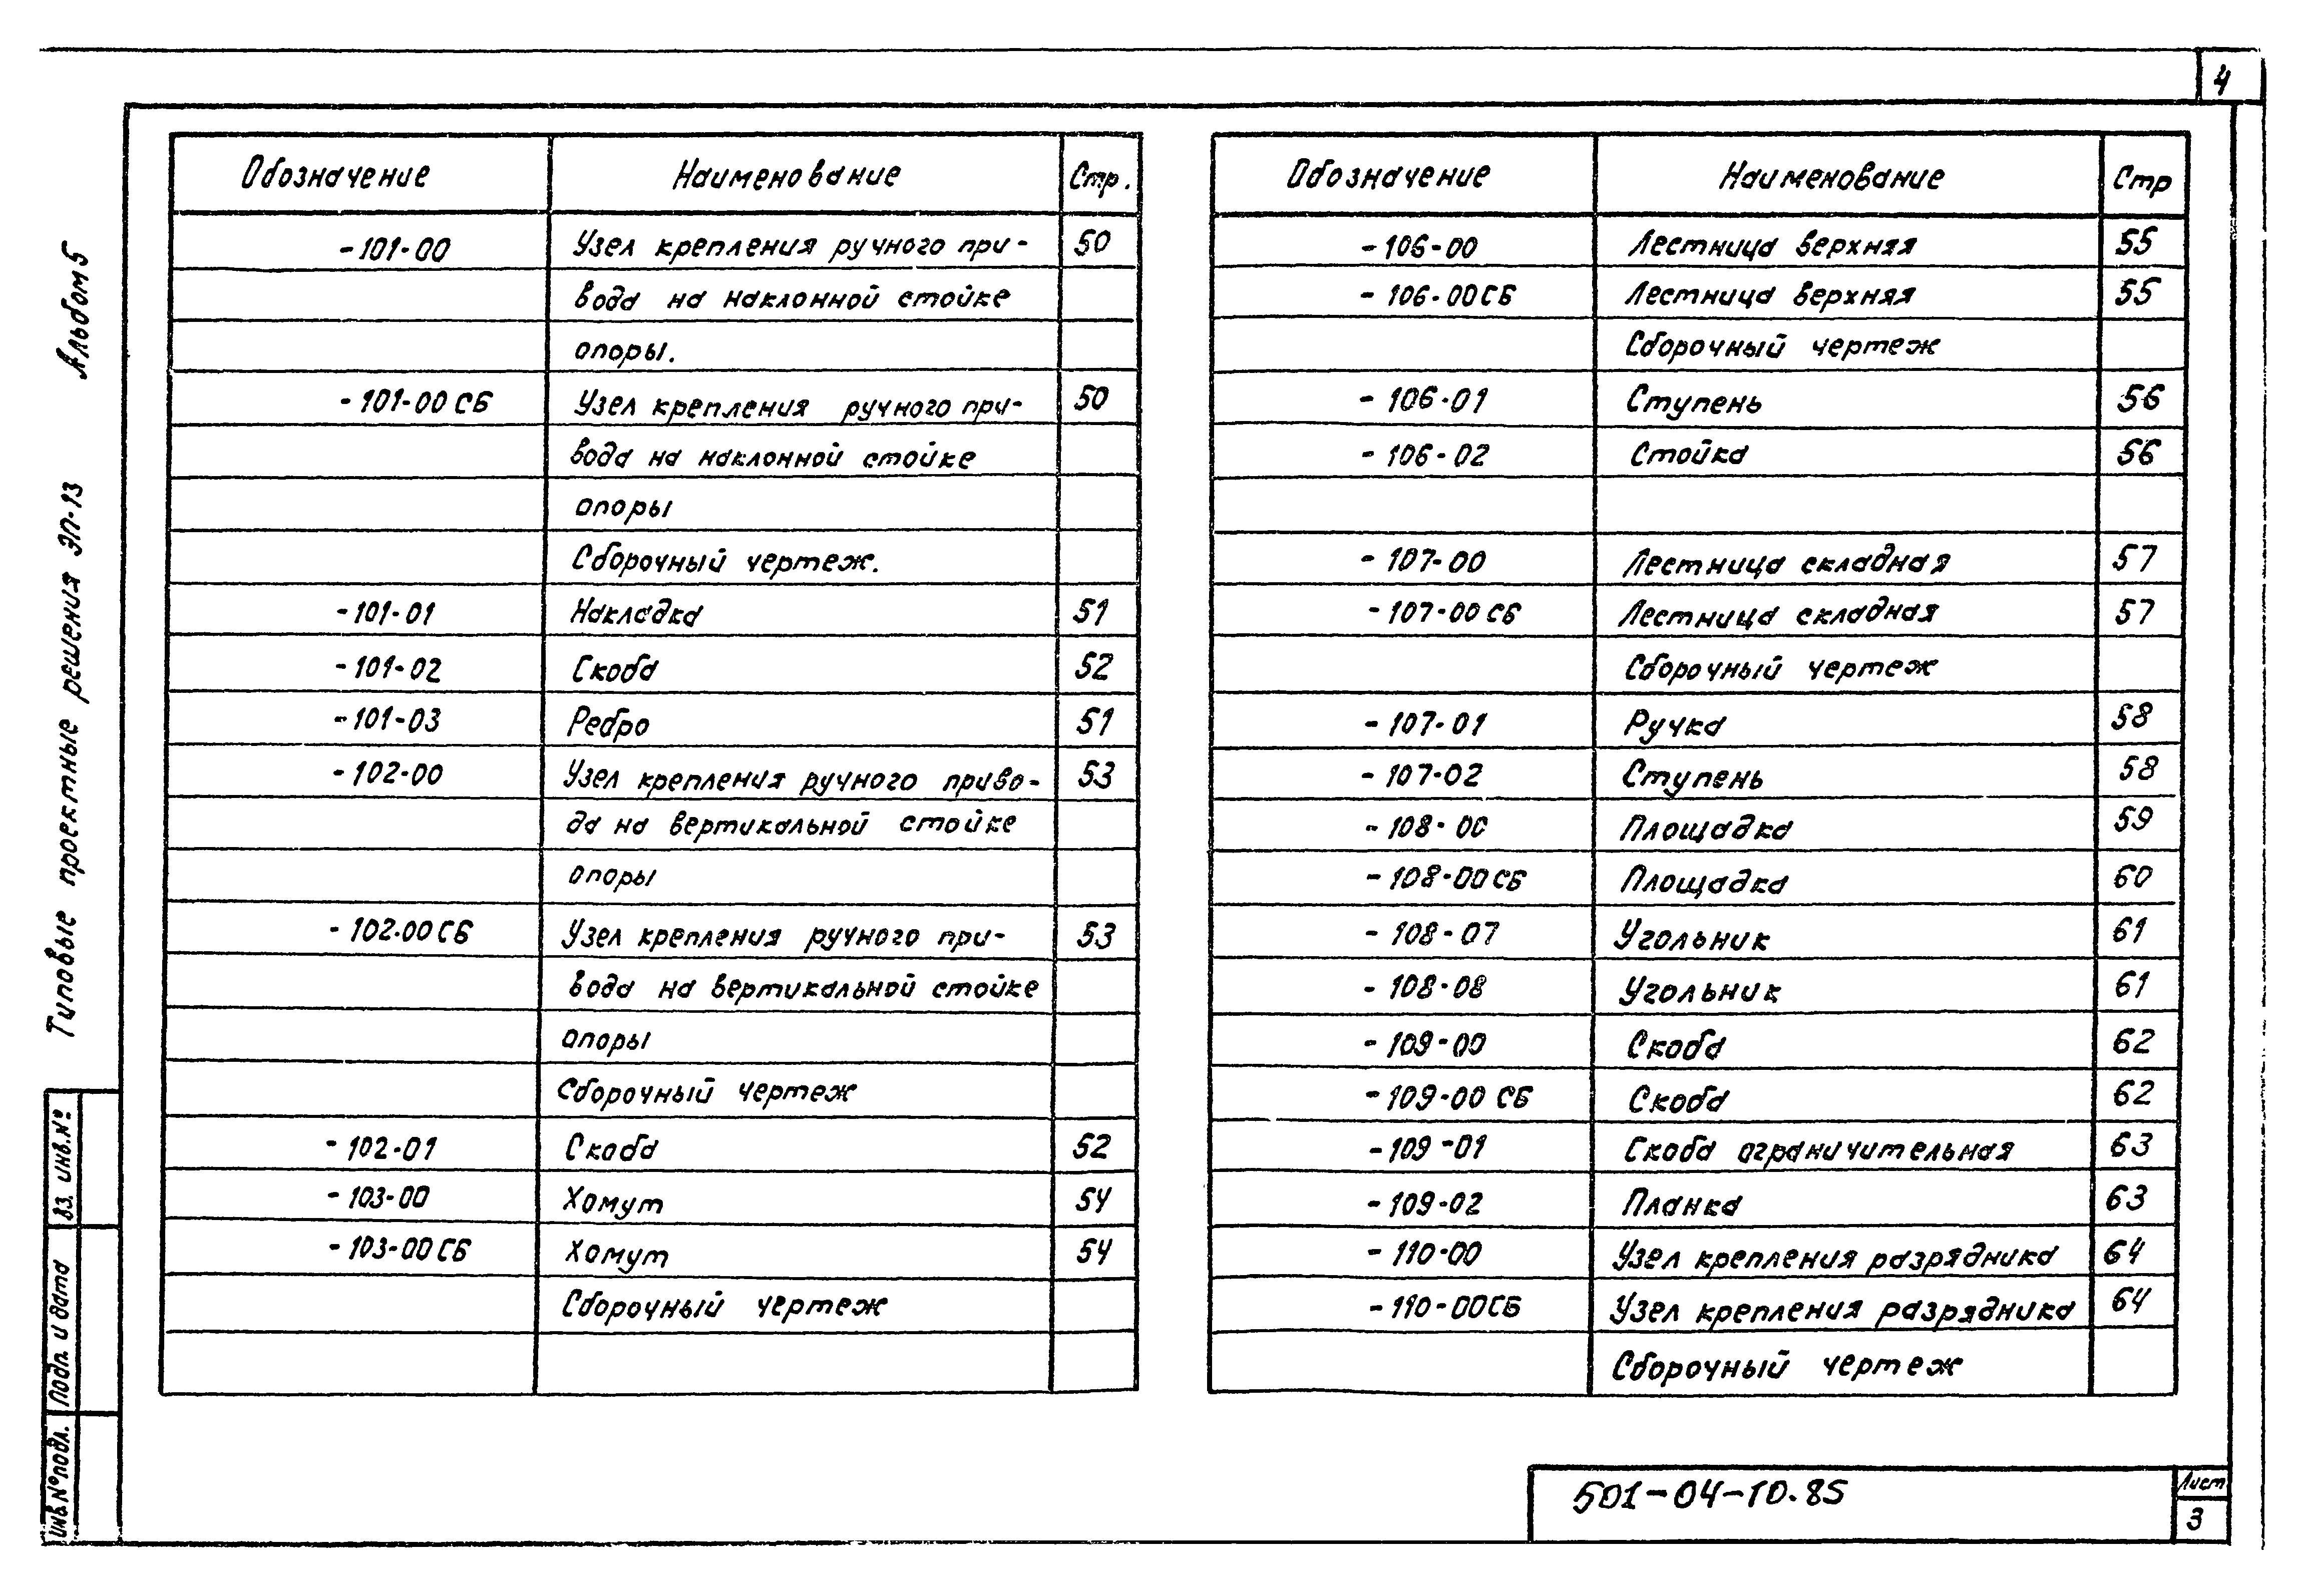 4
Альбом 5
Типовые проектные решения ЭП-13
Обозначение Наименование Стр.
-101-00 Узел крепления ручного при- 50
вода на наклонной стойке
опоры.
-101-00 СБ Узел крепления ручного при- 50
вода на наклонной стойке
опоры
Сборочный чертеж.
-101-01 Накладка 51
-101-02 Скоба 52
-101-03 Ребро 51
-102-00 Узел крепления ручного приво- 53
да на вертикальной стойке
опоры
-102-00 СБ Узел крепления ручного при- 53
вода на вертикальной стойке
опоры
Сборочный чертеж
-102-01 Скоба 52
-103-00 Хомут 54
-103-00 СБ Хомут 54
Сборочный чертеж
Обозначение Наименование Стр
-106-00 Лестница верхняя 55
-106-00 СБ Лестница верхняя 55
Сборочный чертеж
-106-01 Ступень 56
-106-02 Стойка 56
-107-00 Лестница складная 57
-107-00 СБ Лестница складная 57
Сборочный чертеж
-107-01 Ручка 58
-107-02 Ступень 58
-108-00 Площадка 59
-108-00 СБ Площадка 60
-108-07 Угольник 61
-108-08 Угольник 61
-109-00 Скоба 62
-109-00 СБ Скоба 62
-109-01 Скоба ограничительная 63
-109-02 Планка 63
-110-00 Узел крепления разрядника 64
-110-00 СБ Узел крепления разрядника 64
Сборочный чертеж
Вз. инв. №
Подп. и дата
Инв. № подл.
501-04-10.85
Лист
3